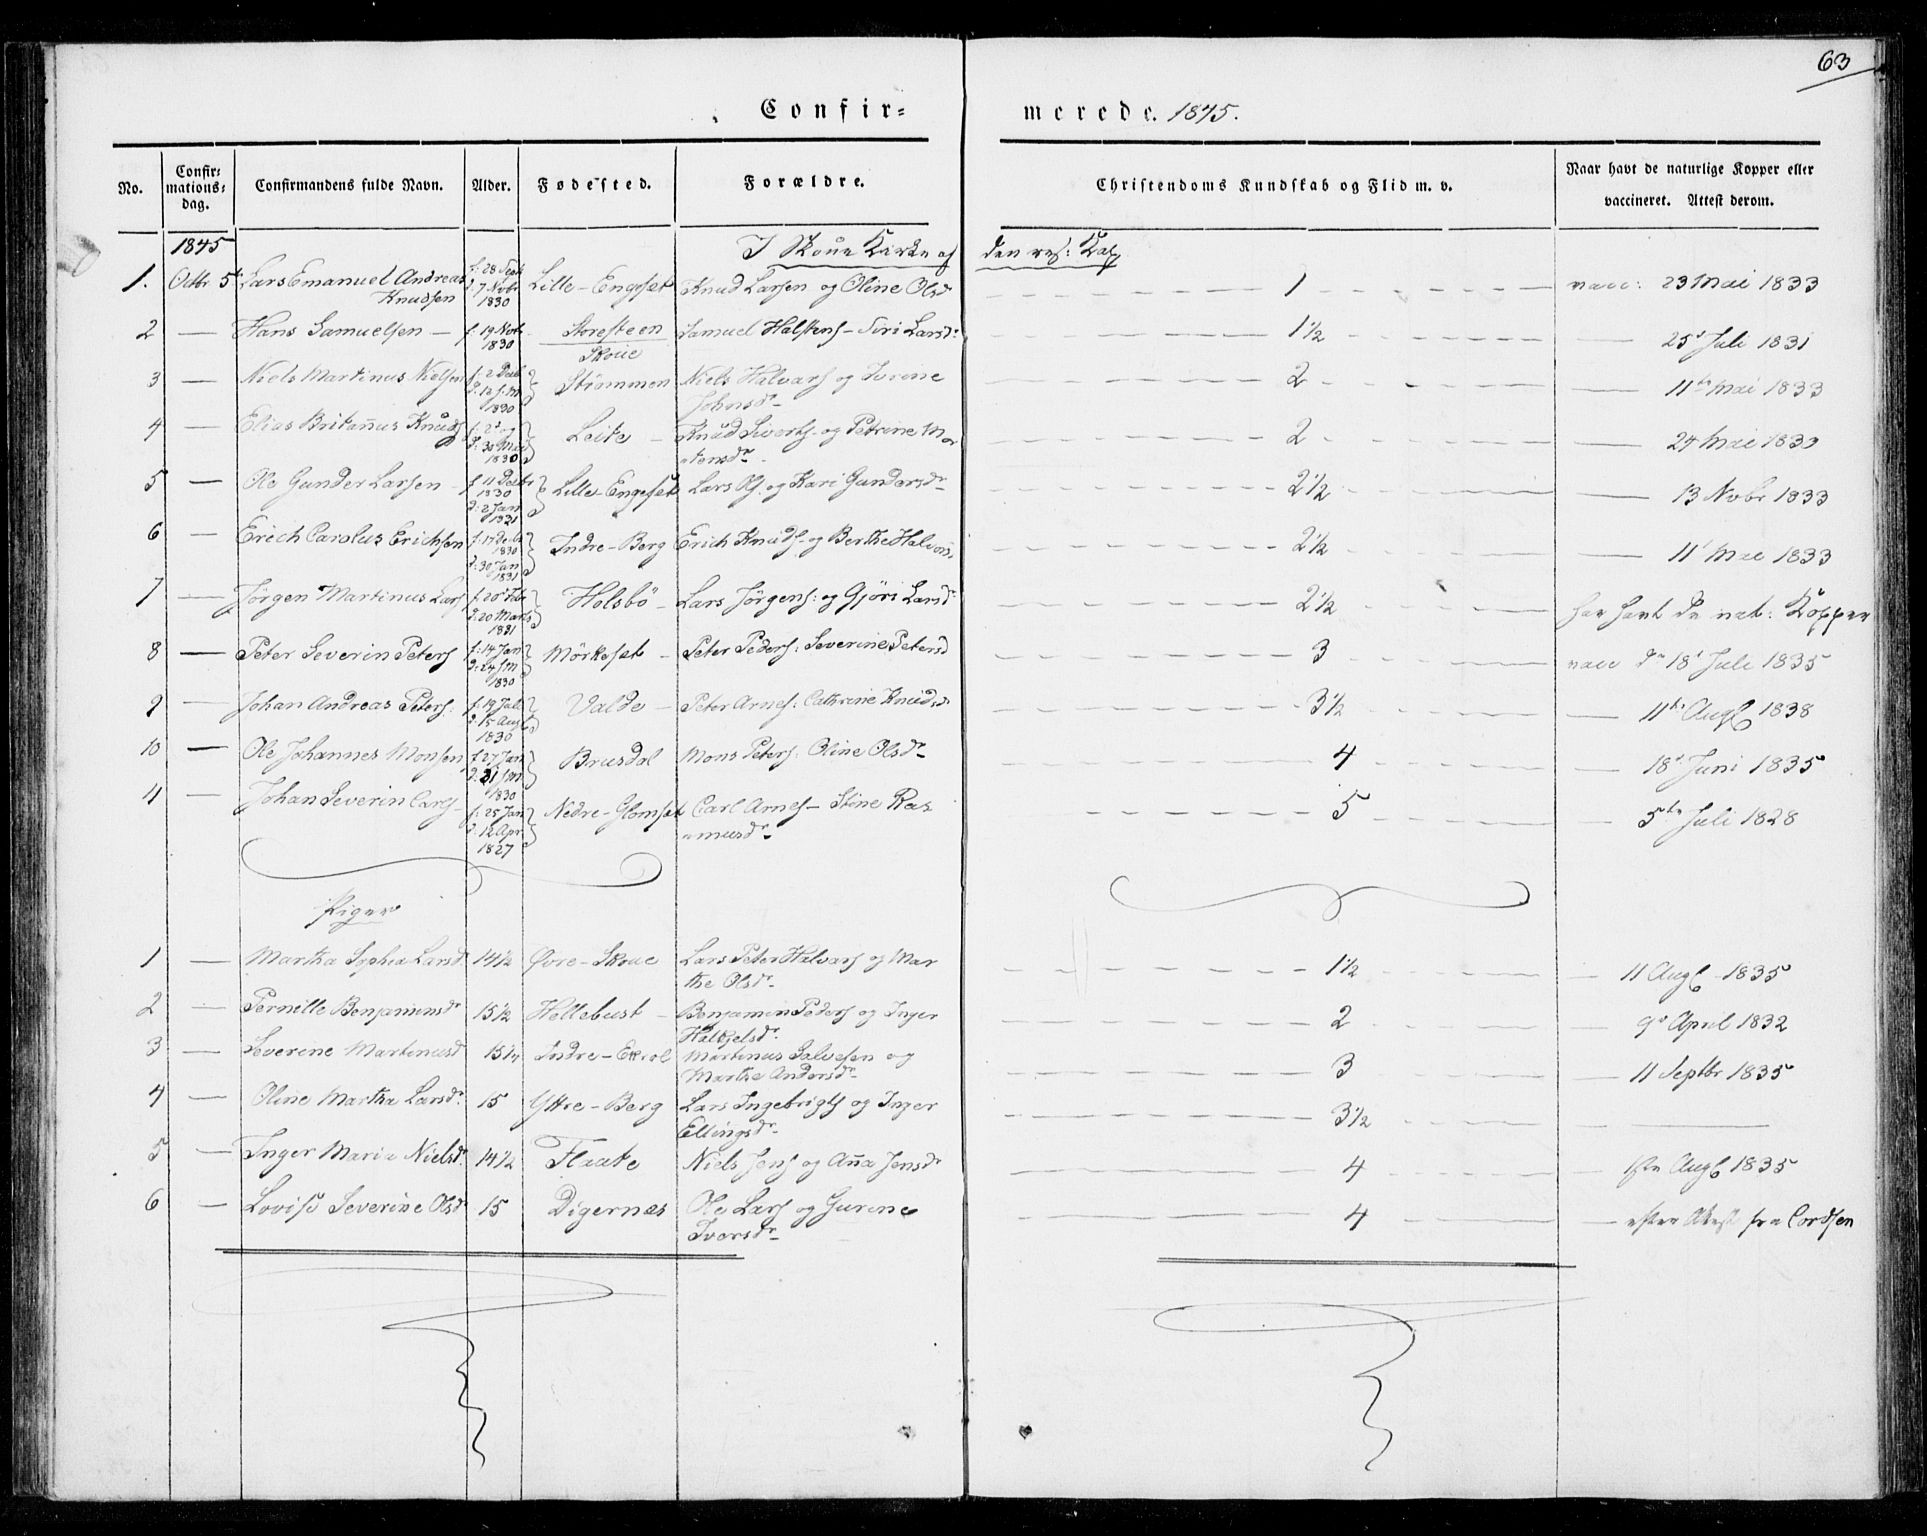 63
Confir= merede. 1845.
No. Confir=mations=dag. Confirmandens fulde Navn. Alder. Fødested. Forældre. Christendoms Kundskab og Flid m. v. Naar havt de naturlige Kopper eller vaccineret. Attest derom.
1845 I Skoue Kirke af den res: Kap.
1. Octbr 5 Lars Emanuel Andreas f: 28 Sept Lille-Engeset Knud Larsen og Oline Olsd 1 vacc: 23 Mai 1833
Knudsen d: 7 Nobr
1830
2 — Hans Samuelsen — f: 19 Nob Storesteen Samuel Halstens- Siri Larsdr 1½ — 25d Juli 1831
1830 Skoue
3 — Niels Martinus Nielsen f: 2 Decb Strømmen Niels Halvars og Ivrine 2 — 11te Mai 1833
d: 12 s.M Johnsdr
1830
4 — Elias Britanus Knuds f: 2d og Leite — Knud Siverts- og Petrine Mor 2 — 24 Mai 1833
d: 30 Mai tensdr
1830
5 — Ole Gunder Larsen f 11 Decbr Lille-Engeset Lars Ols. og Kari Gundersdr 2½ — 13 Nobr 1833
1830
d: 2 Jan
1831
6 — Erich Carolus Erichsen f: 17 Decb Indre-Berg Erich Knuds- og Berthe Halvors 2½ — 11' Mai 1833
1830
d: 30 Jan
1831
7 — Jörgen Martinus Lars f. 20 Feb Holsbö — Lars Jörgens: og Gjöri Larsdr 2½ har havt de nat: Kopper
d: 20 Marts
1831
8 — Peter Severin Peters f: 14 Jan Mörkeset — Peter Peders: Severine Petersd 3 vacc dn 18d Juli 1835
d: 24 s.M
1830
9 — Johan Andreas Peters: f: 19 Jul Valde — Peter Arnes: Cathrine Knudsd 3½ — 11te Augl 1838
d: 15 Aug
1830
10 — Ole Johannes Monsen f 27 Jan Brusdal Mons Peters: Oline Olsdr 4 — 18d Juni 1835
d: 31 s.M
1830
11 — Johan Severin Carls f: 25 Jan Nedre-Glomset Carl Arnes- Stine Ras 5 — 5te Juli 1828
d: 12 Apr musdr
1827
Piger
1 — Martha Sophia Larsd 14½ Øvre-Skoue Lars Peter Halvars og Mar 1½ — 11 Augl 1835
the Olsdr
2 — Pernille Benjaminsdr 15½ Hellebust — Benjamin Peders og Inger 2 — 9d April 1832
Halkjelsdr
3 — Severine Martinusd 15¼ Indre-Ekrol Martinus Salvesen og 3 — 11 Septbr 1835
Marthe Andersdr
4 — Oline Martha Larsdr 15 Yttre-Berg Lars Ingebrigts og Inger 3½ —
Ellingsdr
5 — Inger Maria Nielsdr 14½ Flaate Niels Jens og Ana Jensdr 4 — 1ste Augl 1835
6 — Lovise Severine Olsdr 15 Digernes Ole Lars og Gurine 4 — efter Attest fra Cordsen
Iversdr